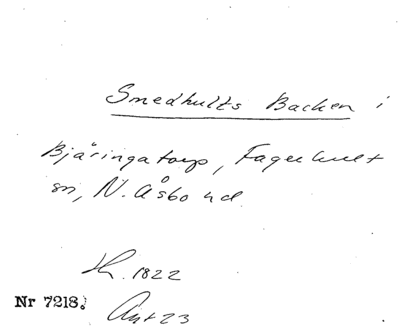 Smedhults Backen i
Bjäringatorp, Fagerhult
sn, N. Åsbo hd
Lk. 1822
Nr 7218. Ant 23